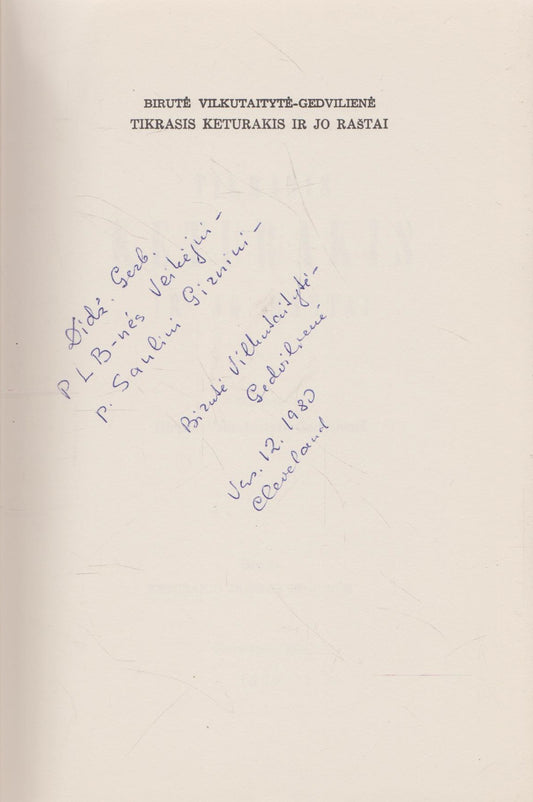 BIRUTĖ VILKUTAITYTĖ-GEDVILIENĖ
TIKRASIS KETURAKIS IR JO RAŠTAI
Didž. Gerb.
PLB-nės Veikėjui-
p. Sauliui Girniui-
Birutė Vilkutaitytė-
Gedvilienė
Vas. 12. 1980
Cleveland